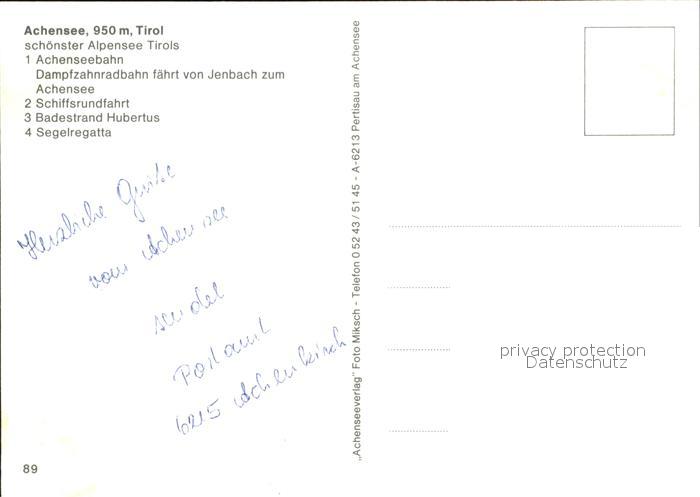 Achensee, 950 m, Tirol
schönster Alpensee Tirols
1 Achenseebahn
Dampfzahnradbahn fährt von Jenbach zum
Achensee
2 Schiffsrundfahrt
3 Badestrand Hubertus
4 Segelregatta
Herzliche Grüße
vom Achensee
sendet
Postamt
6215 Achenkirch
89
„Achenseeverlag" Foto Miksch - Telefon 0 52 43 / 51 45 - A-6213 Pertisau am Achensee
privacy protection
Datenschutz